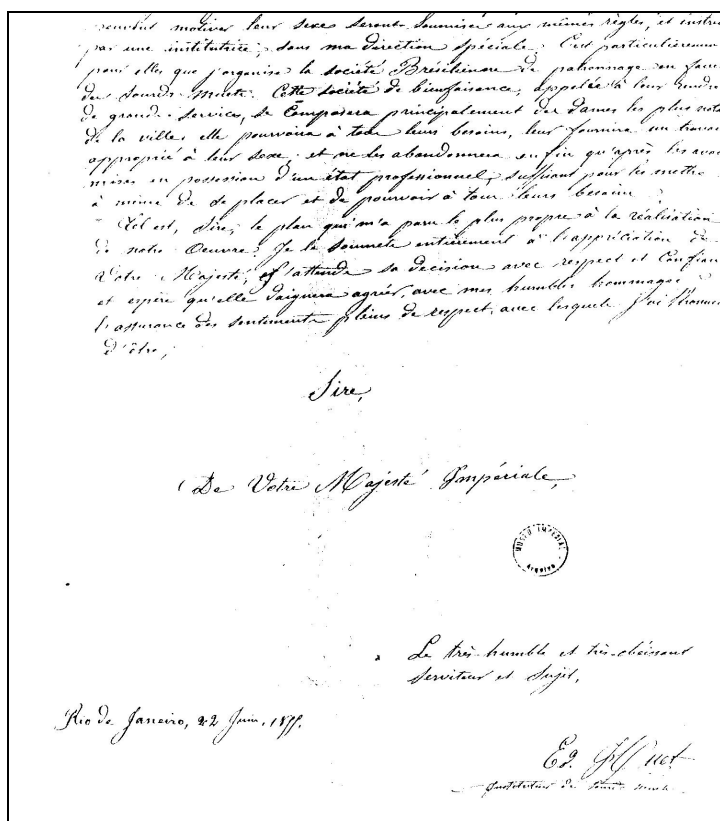 motiver leur sexe seront soumises aux mêmes règles, et instru
par une institutrice, sous ma direction spéciale. C'est particulièrement
pour elles que j'organise la société Brésilienne de patronnage en faveur
des sourds-muets. Cette société de bienfaisance, appelée à leur rendre
de grands services, se composera principalement des dames les plus nota
de la ville; elle pourvoira à tous leurs besoins, leur fournira un travail
approprié à leur sexe, et ne les abandonnera enfin qu'après les avoir
mises en possession d'un état professionnel, suffisant pour les mettre
à même de se placer et de pourvoir à tous leurs besoins.
Tel est, Sire, le plan qui m'a paru le plus propre à la réalisation
de notre Oeuvre. Je le soumets entièrement à l'appréciation de
Votre Majesté, j'attends sa décision avec respect et confian
et espère qu'elle daignera agréer, avec mes humbles hommages
l'assurance des sentiments pleins de respect avec lesquels j'ai l'honneur
d'être,
Sire,
De Votre Majesté Impériale,
MUSEU IMPERIAL
Arquivo
Le très-humble et très-obéissant
serviteur et sujet,
Rio de Janeiro, 22 Juin, 1855.
Ed. Huet
Instituteur de sourds-muets